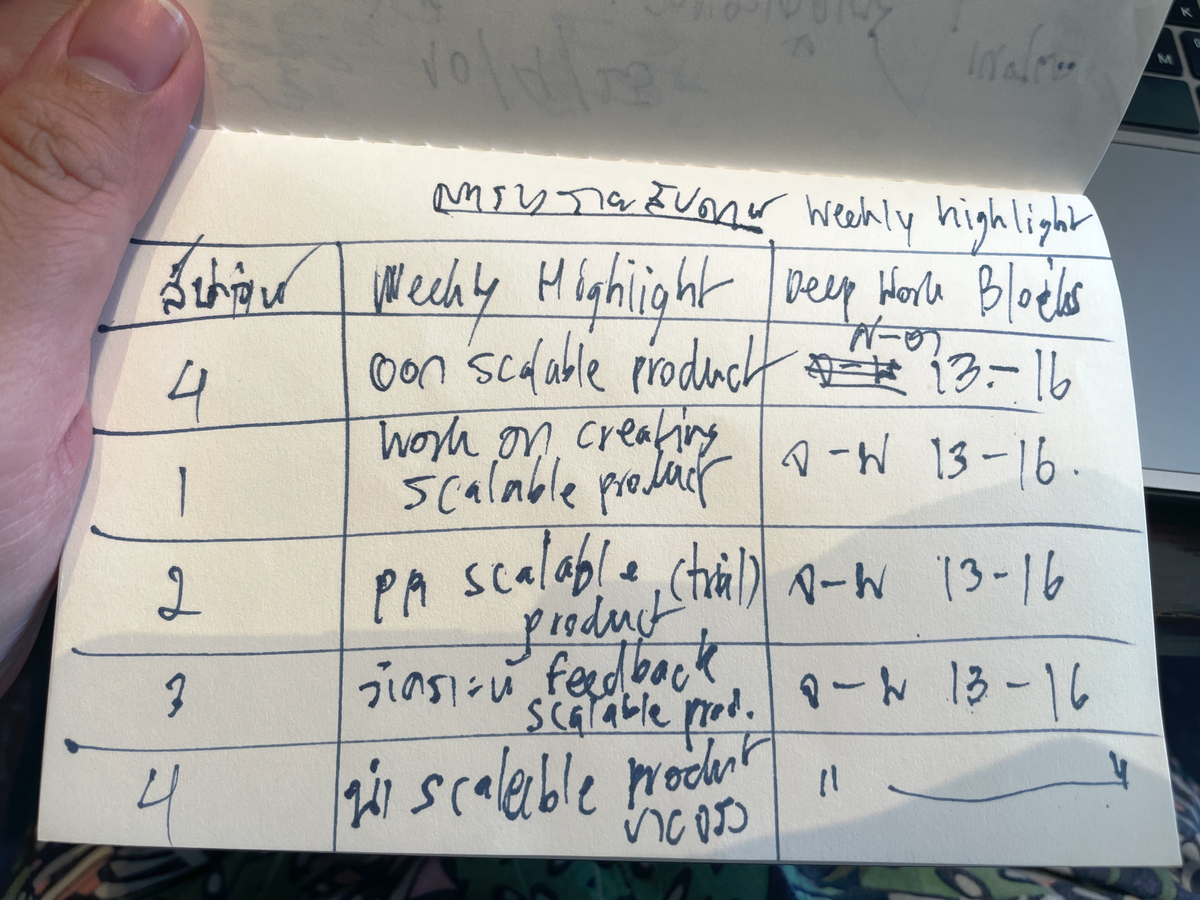 ตารางรายสัปดาห์ Weekly highlight
สัปดาห์ Weekly Highlight Deep Work Blocks
4 ออก scalable product 13.-16
1 Work on creating scalable product จ-พ 13-16.
2 scalable (trial) product จ-พ 13-16
3 วิเคราะห์ feedback scalable prod. จ-พ 13-16
4 scalable product ขายจริง " "